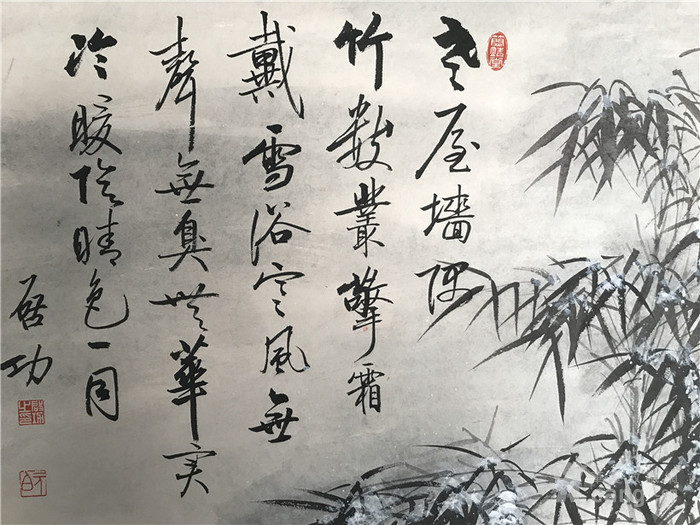 老屋墻隅
竹數叢擎霜
戴雪浴寒風無
聲無臭無華实
冷暖陰晴色一同
启功